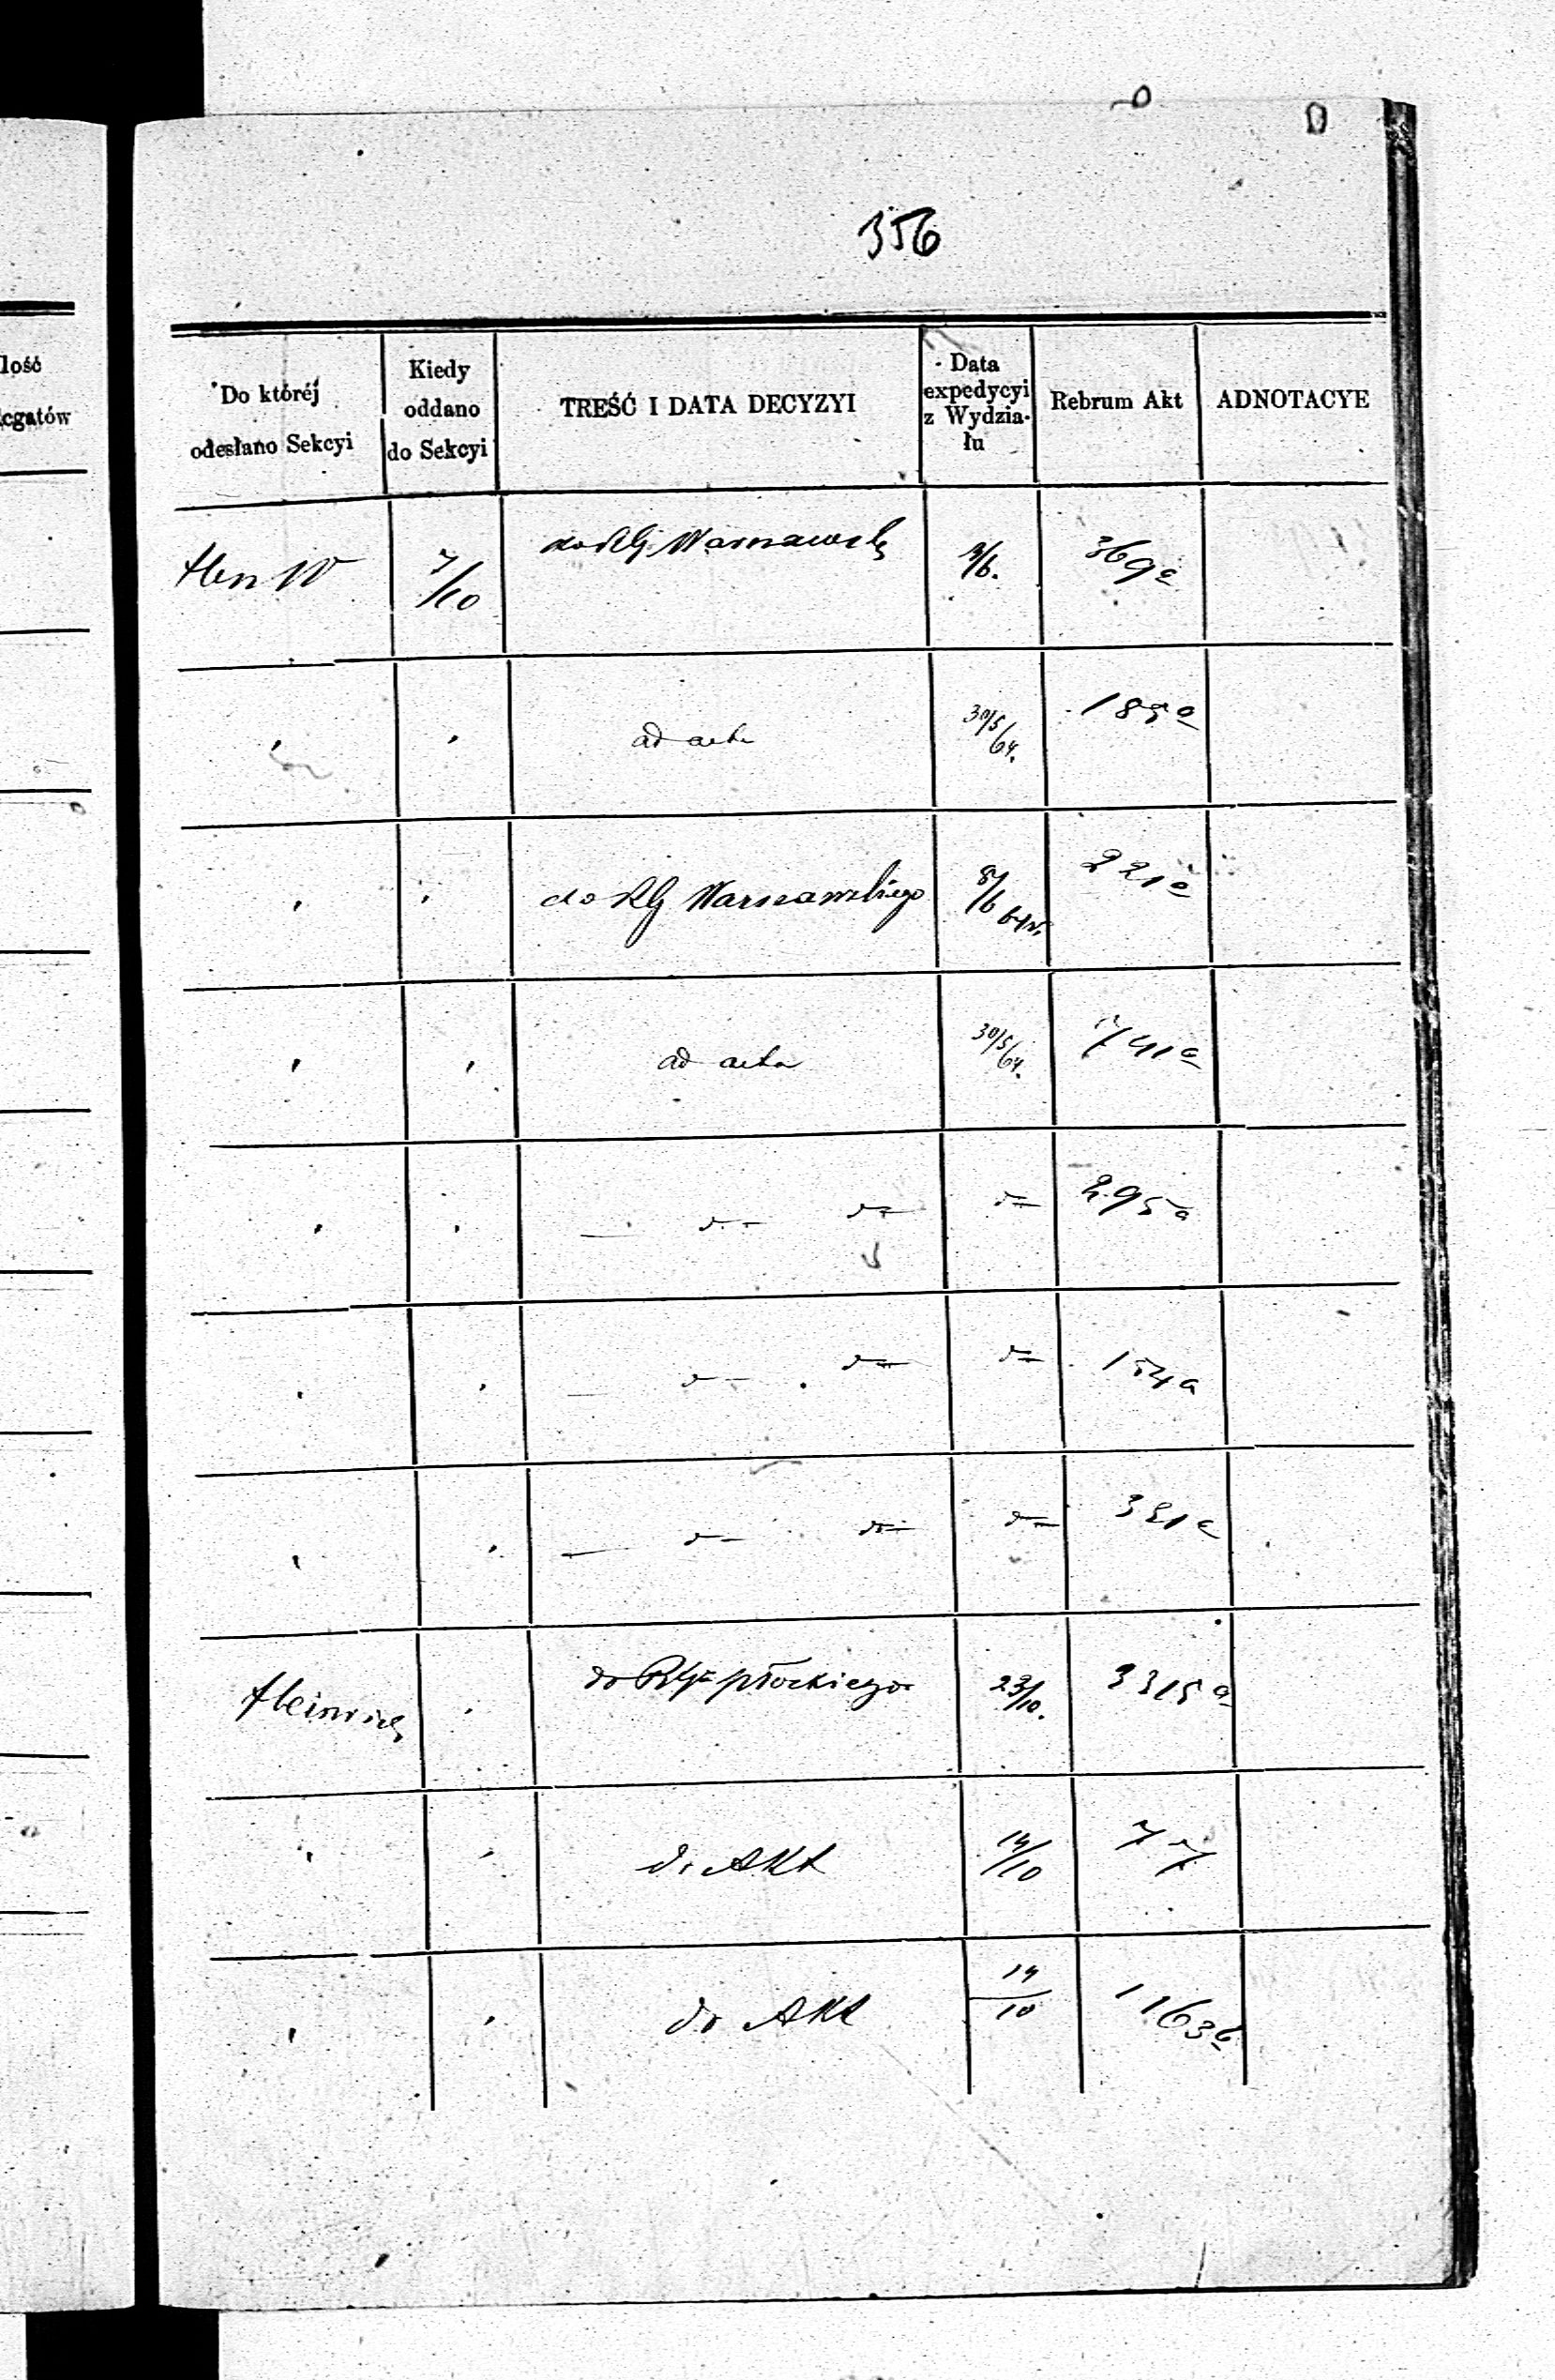 356
lość
egatów
Do któréj odesłano Sekcyi | Kiedy oddano do Sekcyi | TREŚĆ I DATA DECYZYI | Data expedycyi z Wydzia-łu | Rebrum Akt | ADNOTACYE
7/10 | do RG Warszawsk | 369a
" | " | ad acta | 30/5 64. | 185a
" | " | do RG Warszawskiego | 8/6 64r. | 221a
" | " | ad acta | 30/5 64. | 741a
" | " | — d— d— | d— | 295a
" | " | — d— d— | d— | 154a
" | " | — d— d— | d— | 321a
Heinrich | " | do RGu płockiego | 23/10. | 3315a
" | " | do Akt | 14/10 | 77
" | " | do Akt | 14/10 | 1163b